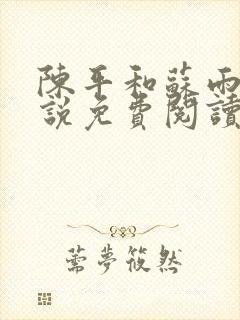 陳平和蘇雨
說免費閱讀
薷夢筱然